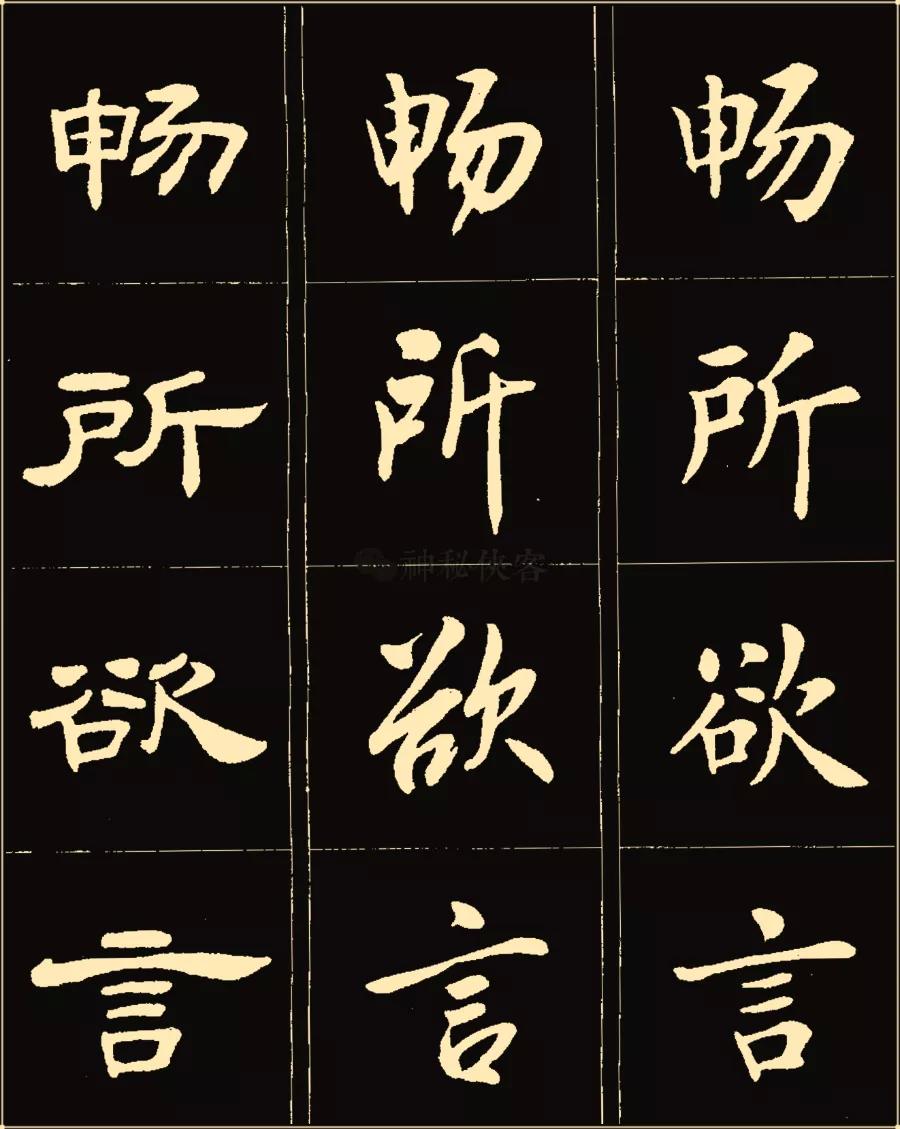 畅所欲言
畅所欲言
畅所欲言
神秘侠客